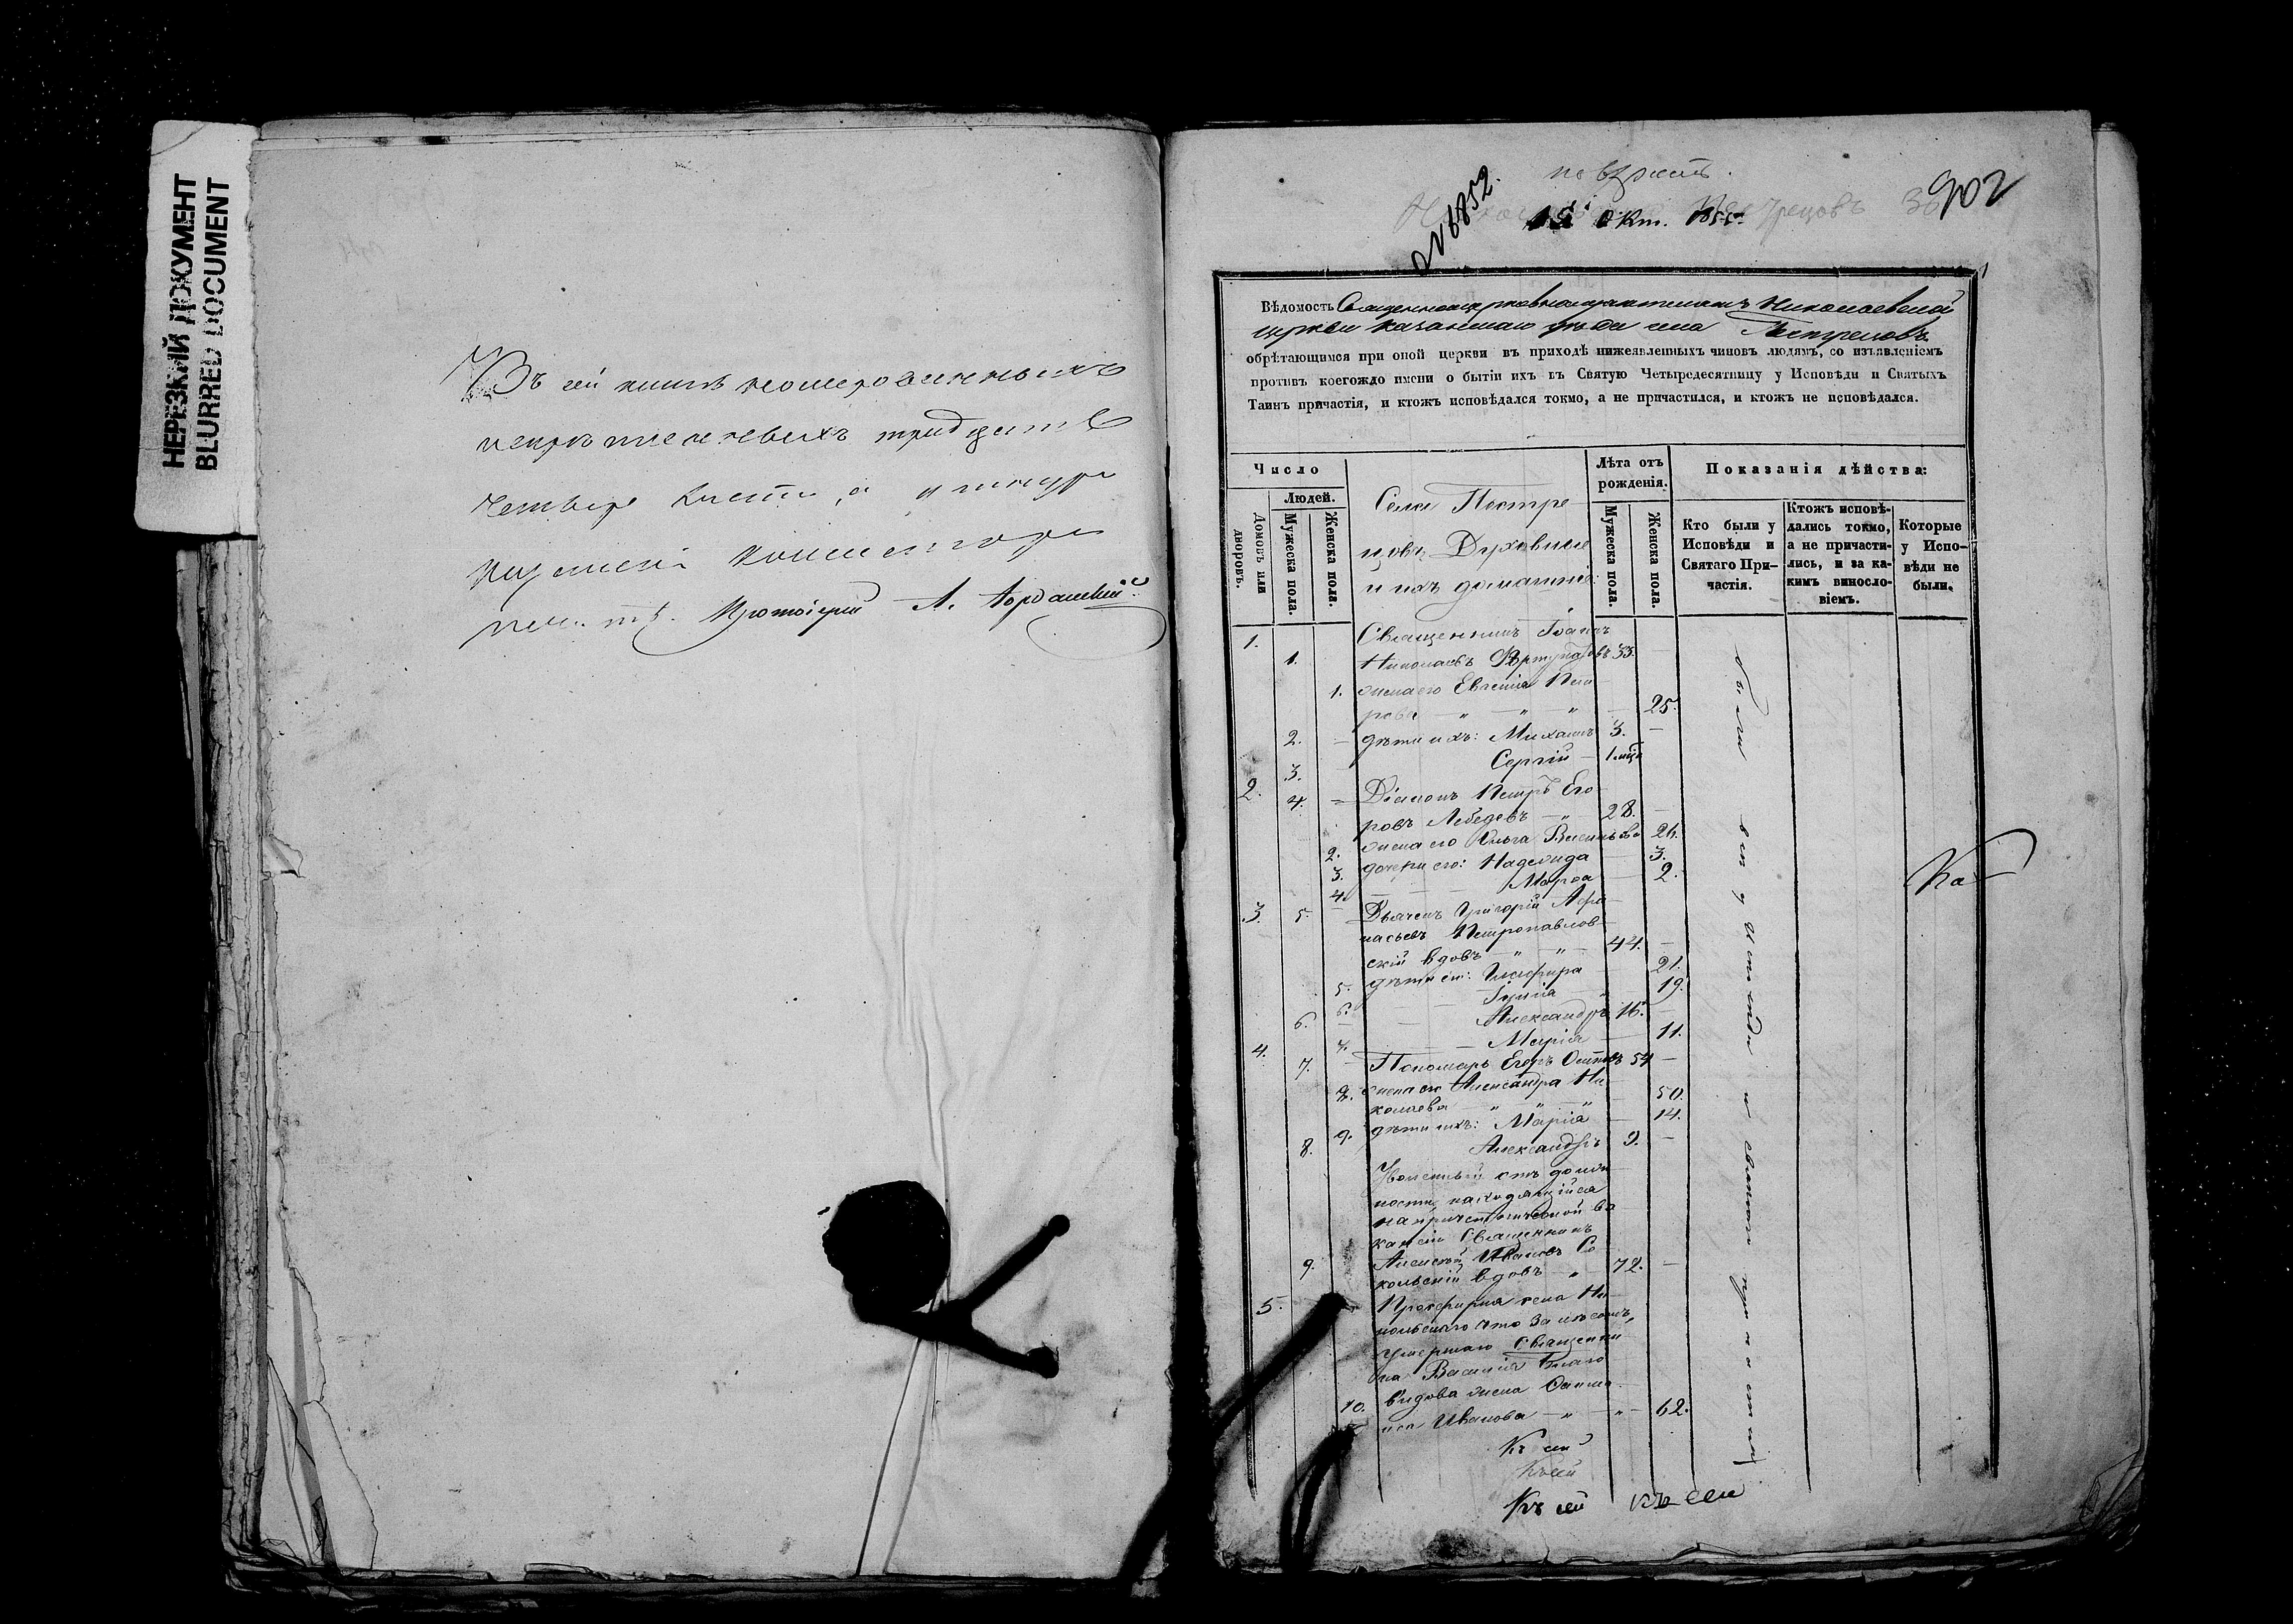 НЕРЕЗКИЙ ДОКУМЕНТ
BLURRED DOCUMENT
Въ сей книгѣ номерованныхъ
и скрѣпленныхъ тридцать
четыре листа, а
Консисторіи
Протоіерей А.
№ 6852.
15 Окт. 902
Вѣдомость Священноцерковнослужителямъ Николаевской
церкви Казанскаго уѣзда села Пестрецовъ
обрѣтающимся при оной церкви въ приходѣ нижеявленныхъ чиновъ людямъ, со изъявленіемъ
противъ коегождо имени о бытіи ихъ въ Святую Четыредесятницу у Исповѣди и Святыхъ
Таинъ причастія, и ктожъ исповѣдался токмо, а не причастился, и ктожъ не исповѣдался.
Число
Людей.
Домовъ или дворовъ.
Мужеска пола.
Женска пола.
Села Пестре-
цовъ Духовные
и ихъ домашніе:
Лѣта отъ рожденія.
Мужеска пола.
Женска пола.
Показанія дѣйства:
Кто были у Исповѣди и Святаго При-частія.
Ктожъ исповѣ-дались токмо, а не причасти-лись, и за ка-кимъ винosло-віемъ.
Которые у Испо-вѣди не были.
1. Священникъ Іоаннъ
1. Николаевъ 33.
1. жена его Евгенія Пет-
рова " " " 25.
2. дѣти ихъ: Михаилъ 3.
3. Сергій 1 мѣс
2. 4. Діаконъ Петръ Его-
ровъ Лебедевъ " 28.
2. жена его Ольга Васильева 26.
3. дочери его: Надежда 3.
4. Марфа 2.
3. 5. Дьячекъ Григорій Афа-
насьевъ Петропавлов-
скій вдовъ " " 44.
5. дѣти его: Глафира 21.
6. 19.
6. Александръ 16.
7. Марія 11.
4. 7. Пономарь Егоръ Осиповъ 54
8. жена его Александра Ни-
колаева " " " 50.
9. дѣти ихъ: Марія 14.
8. Александръ 9.
Уволенный отъ долж-
ности, находящійся
на причетнической ва-
кансіи Священникъ
9. Алексѣй Ивановъ Со-
кольскій вдовъ " 72.
5. села Ни-
кольскаго что за лѣсомъ,
умершаго Священни-
ка Василія Благо-
10. видова жена
Иванова " " 62.
были вси у исповѣди и святаго причастія
Ка
Къ сей
Къ сей
Къ сей къ сей